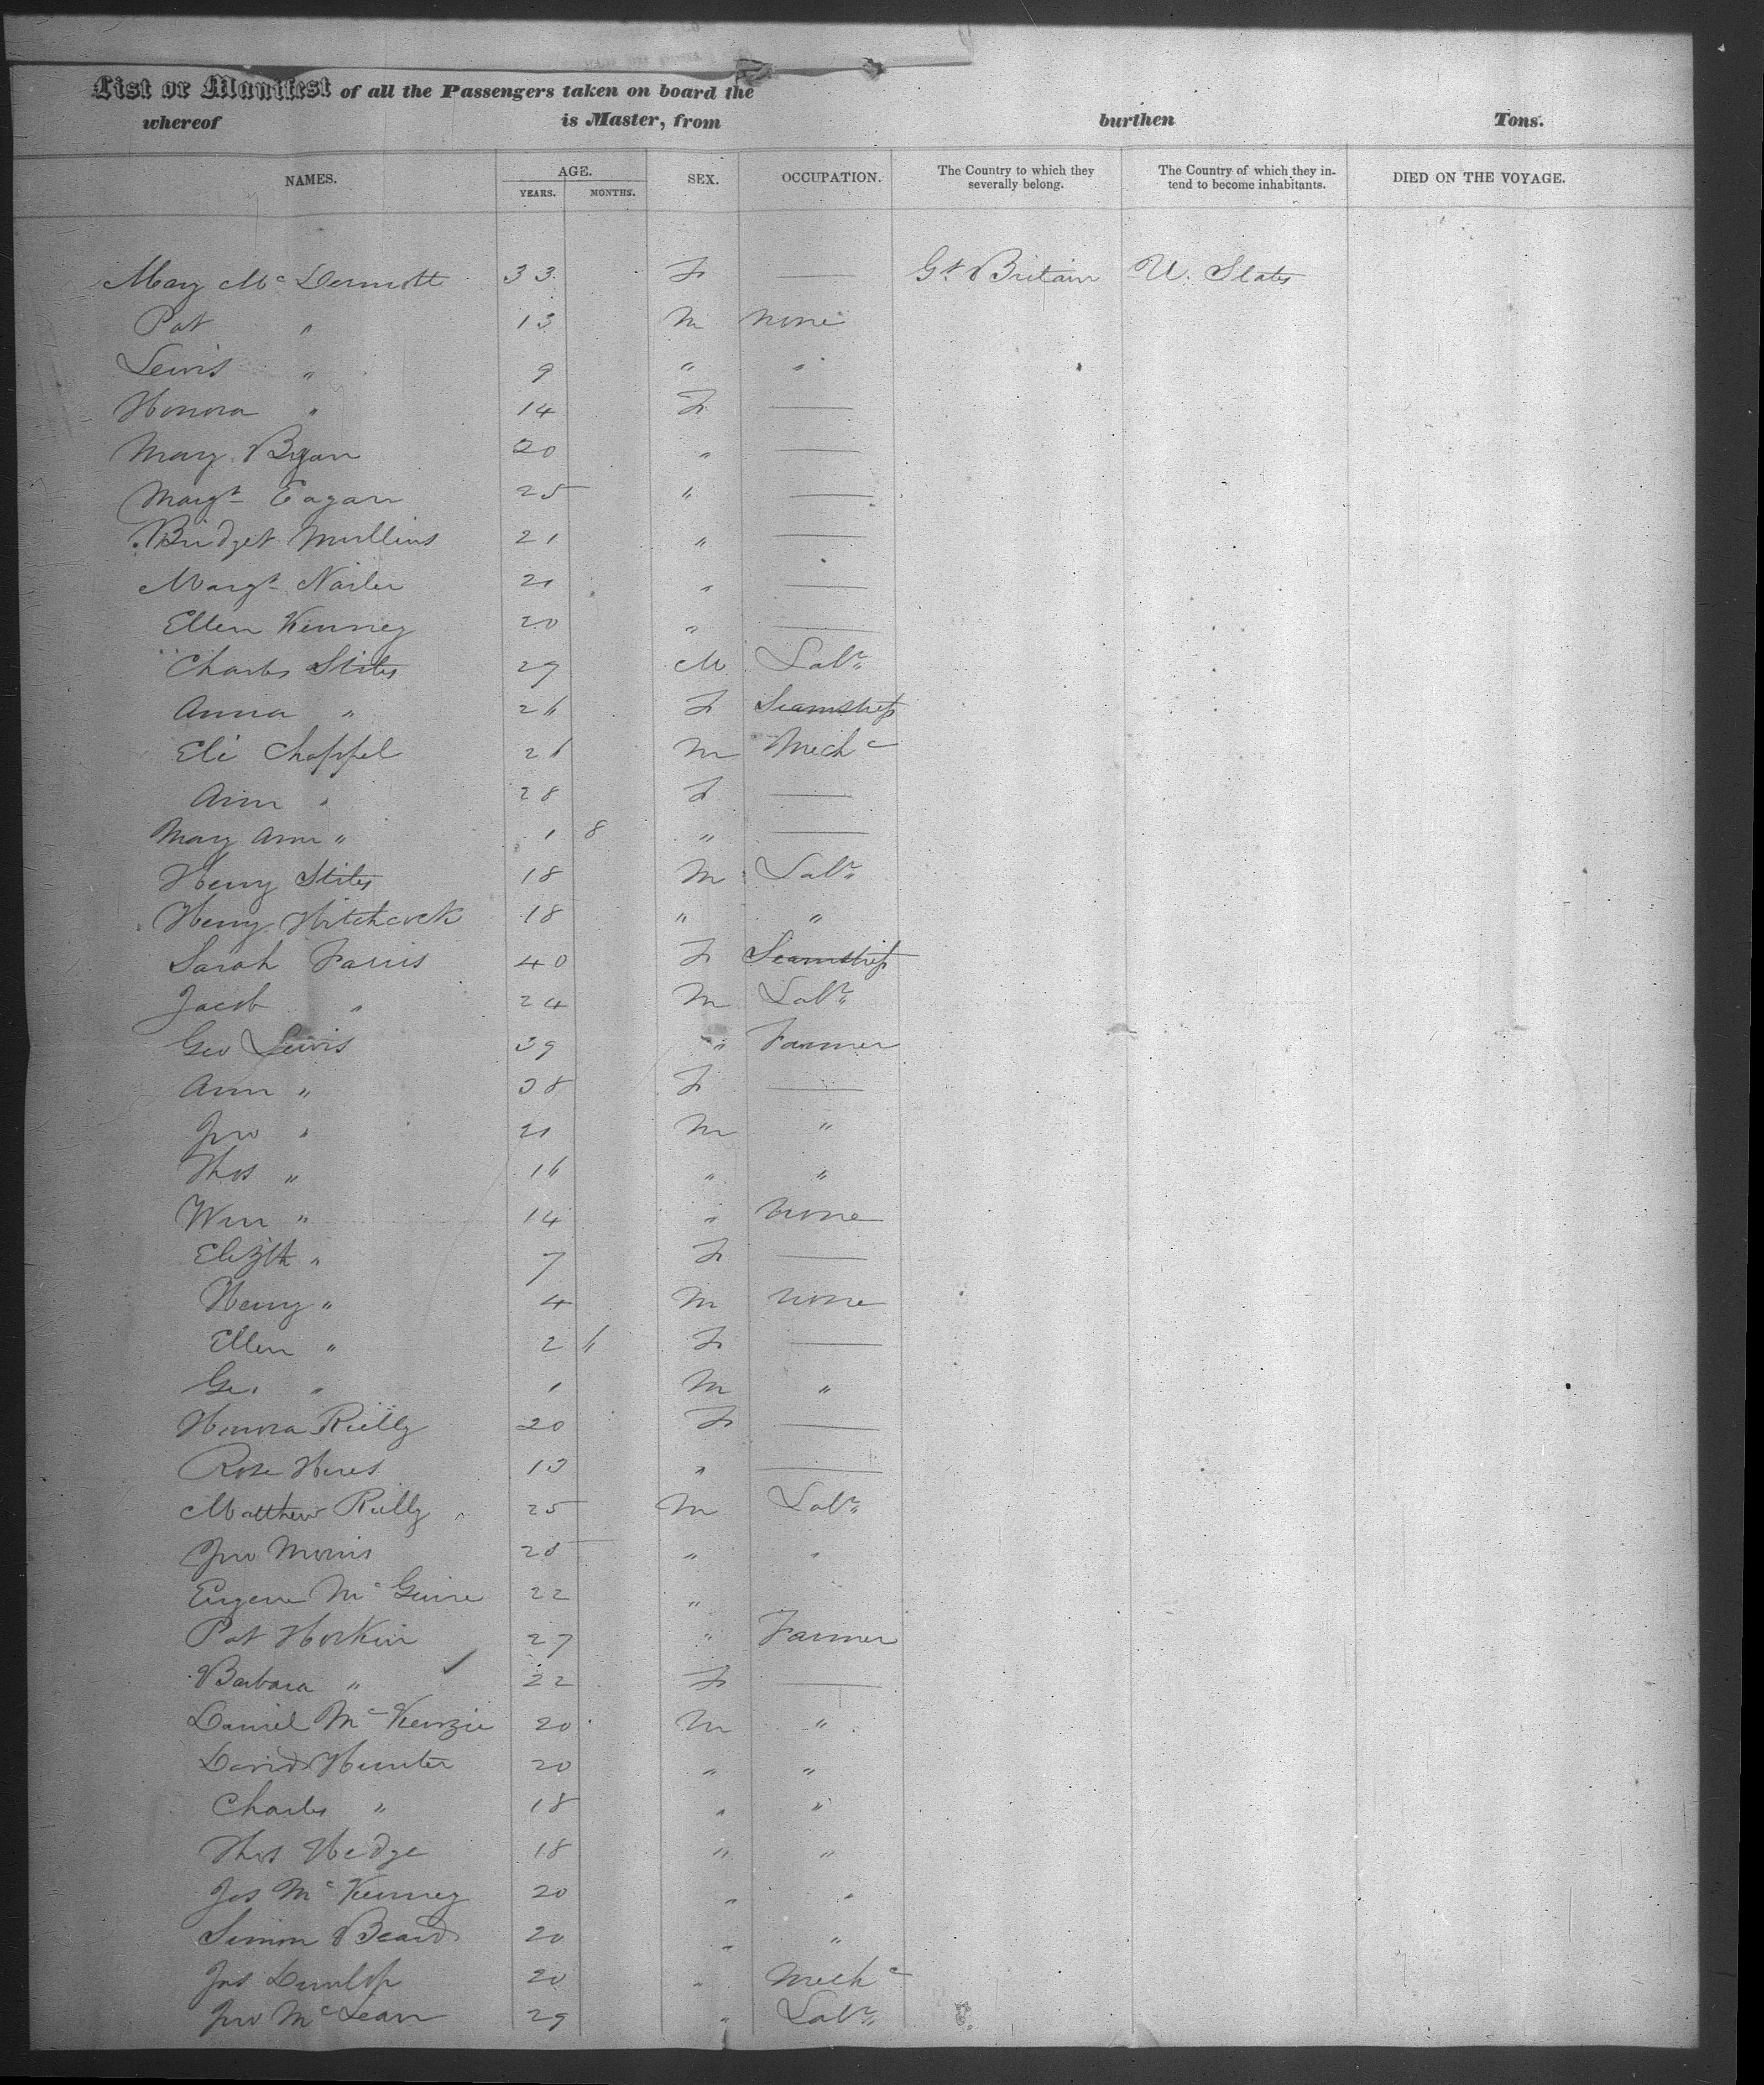 List or Manifest of all the Passengers taken on board the
whereof is Master, from burthen Tons.
NAMES. AGE. SEX. OCCUPATION. The Country to which they severally belong. The Country of which they intend to become inhabitants. DIED ON THE VOYAGE.
YEARS. MONTHS.
Mary McDermott 33 F — Gt Britain U. States
Pat " 13 M none
Lewis " 9 " "
Honora " 14 F —
Mary Bryan 20 " —
Margt Eagan 25 " —
Bridget Mullins 21 " —
Margt Nailer 21 " —
Ellen Kenney 20 " —
Charles Stites 29 M Labr
Anna " 26 F Seamstress
Eli Chappel 26 M Mechc
Ann " 28 F —
Mary Ann " 1 8 " —
Henry Stites 18 M Labr
Henry Hitchcock 18 " "
Sarah Farris 40 F Seamstress
Jacob " 24 M Labr
Geo Lewis 39 " Farmer
Ann " 38 F —
Jno " 21 M "
Thos " 16 " "
Wm " 14 " none
Elizth " 7 F —
Henry " 4 M none
Ellen " 2 6 F —
Geo " 1 M "
Honora Rielly 20 F —
Rose Hines 13 " —
Matthew Rielly 25 M Labr
Jno Morris 25 " "
Eugene McGuire 22 "
Pat Horkin 27 " Farmer
Barbara " 22 F —
Daniel McKenzie 20 M "
David Hunter 20 " "
Charles " 18 " "
Thos Hedge 18 " "
Jos McKenney 20 " "
Simon Beard 20 " "
Jas Dunlop 20 " Mechc
Jno McLean 29 " Labr